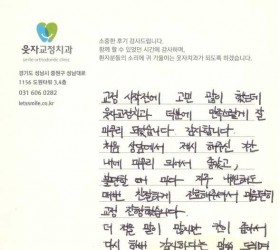 웃자교정치과
smile orthodontic clinic
경기도 성남시 중원구 성남대로
1156 도원타워 3,4층
031 606 0282
letssmile.co.kr
소중한 후기 감사드립니다.
함께 할 수 있었던 시간에 감사하며,
환자분들의 소리에 귀 기울이는 웃자치과가 되도록 하겠습니다.
교정 시작전에 고민 많이 했는데
웃자교정치과 덕분에 만족스럽게 잘
마무리 되었습니다. 감사합니다.
처음 상담에서 제시 해주신 기간
내에 마무리 되어서 좋았고,
불편할 때 마다 자주 내원해도
매번 친절하게 진료해주셔서 마음편히
교정 진행했습니다.
더 적을 말이 많지만 칸이 좁아서
다시 한번 감사하다는 말씀